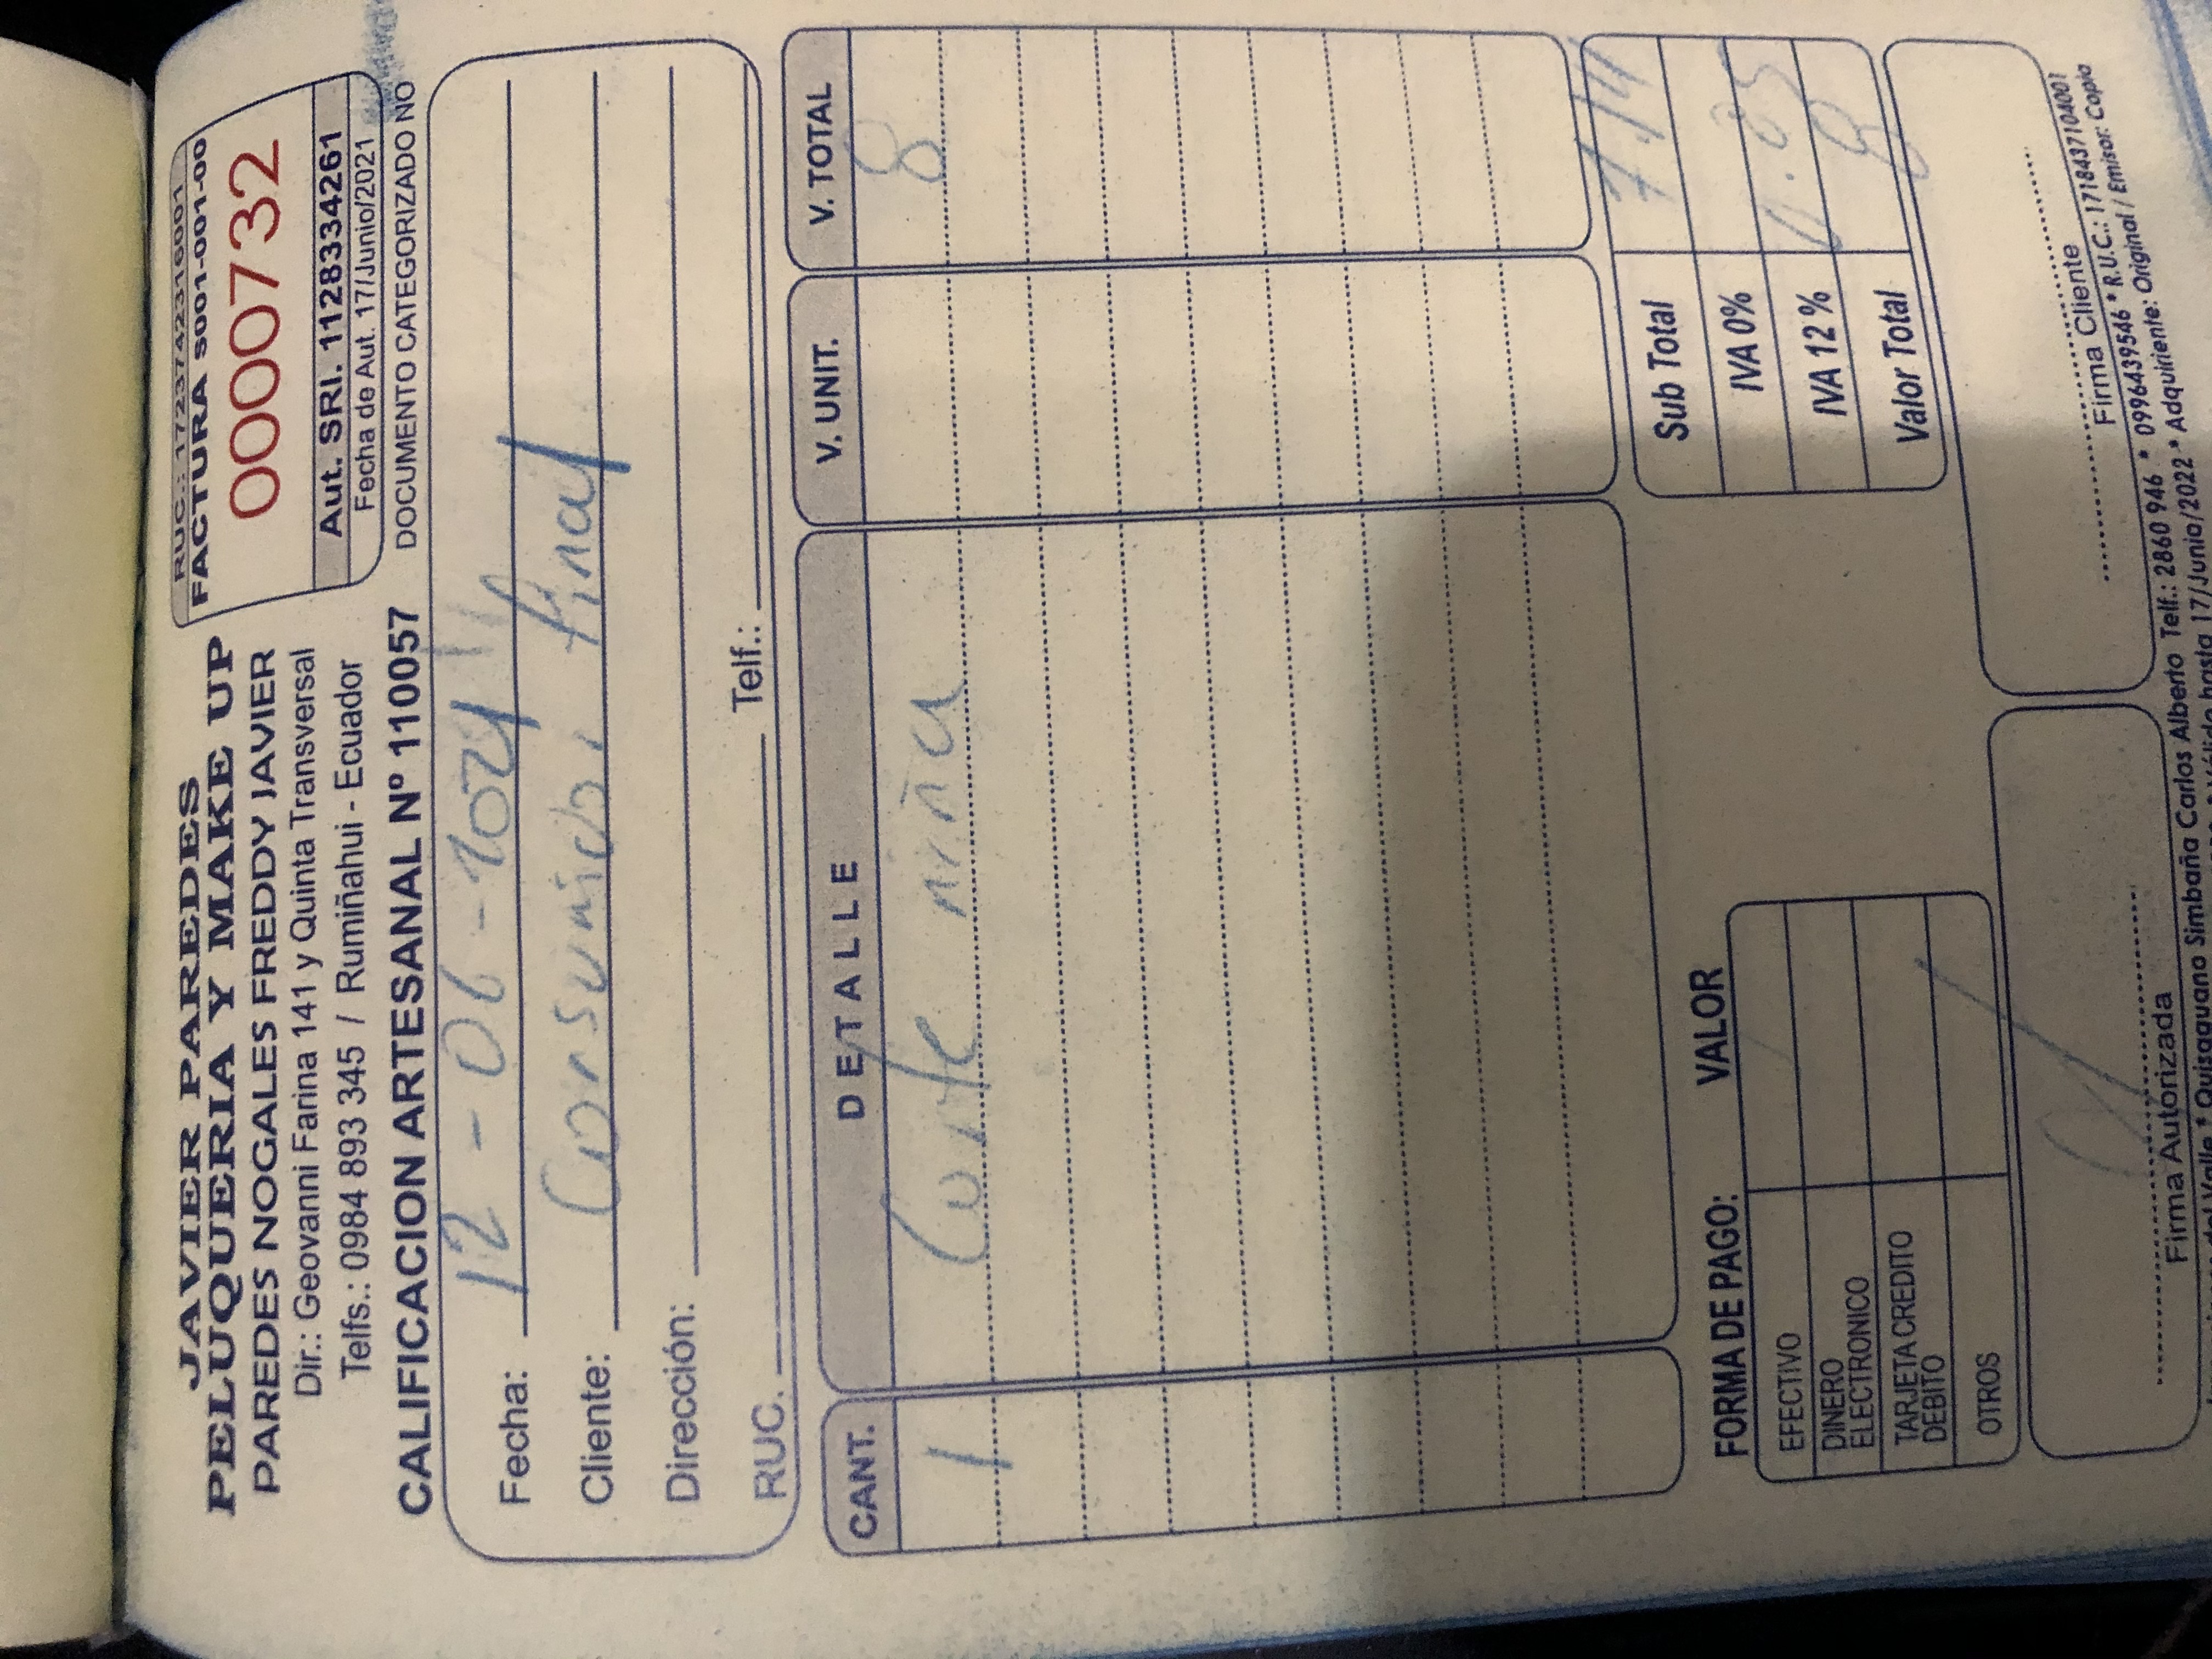 JAVIER PAREDES
PELUQUERIA Y MAKE UP
PAREDES NOGALES FREDDY JAVIER
Dir.: Geovanni Farina 141 y Quinta Transversal
Telfs.: 0984 893 345 / Rumiñahui - Ecuador
CALIFICACION ARTESANAL Nº 110057
RUC.: 1723742316001
FACTURA S001-001-00
0000732
Aut. SRI. 1128334261
Fecha de Aut. 17/Junio/2021
DOCUMENTO CATEGORIZADO NO
Fecha: 12-06-2021
Cliente: Consumidor final
Dirección:
RUC. Telf.:
CANT. DETALLE V. UNIT. V. TOTAL
1 Corte niña 8
Sub Total 7.14
IVA 0%
IVA 12% 0.85
Valor Total 8
FORMA DE PAGO: VALOR
EFECTIVO
DINERO
ELECTRONICO
TARJETA CREDITO
DEBITO
OTROS
Firma Autorizada
Firma Cliente
del Valle * Quisaguano Simbaña Carlos Alberto Telf.: 2860 946 * 0996439546 * R.U.C.: 1718437104001
* Válido hasta 17/Junio/2022 * Adquiriente: Original / Emisor: Copia